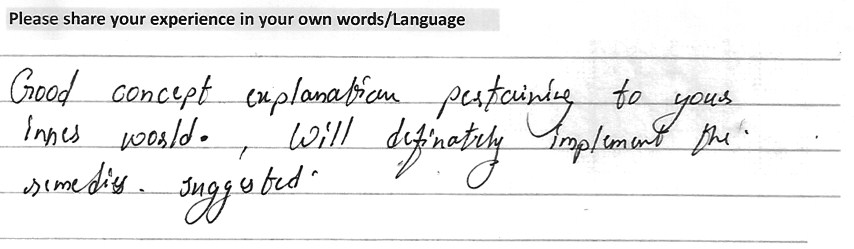 Please share your experience in your own words/Language
Good concept explanation pertaining to your
inner world. , Will definately implement the
remedies. suggested.